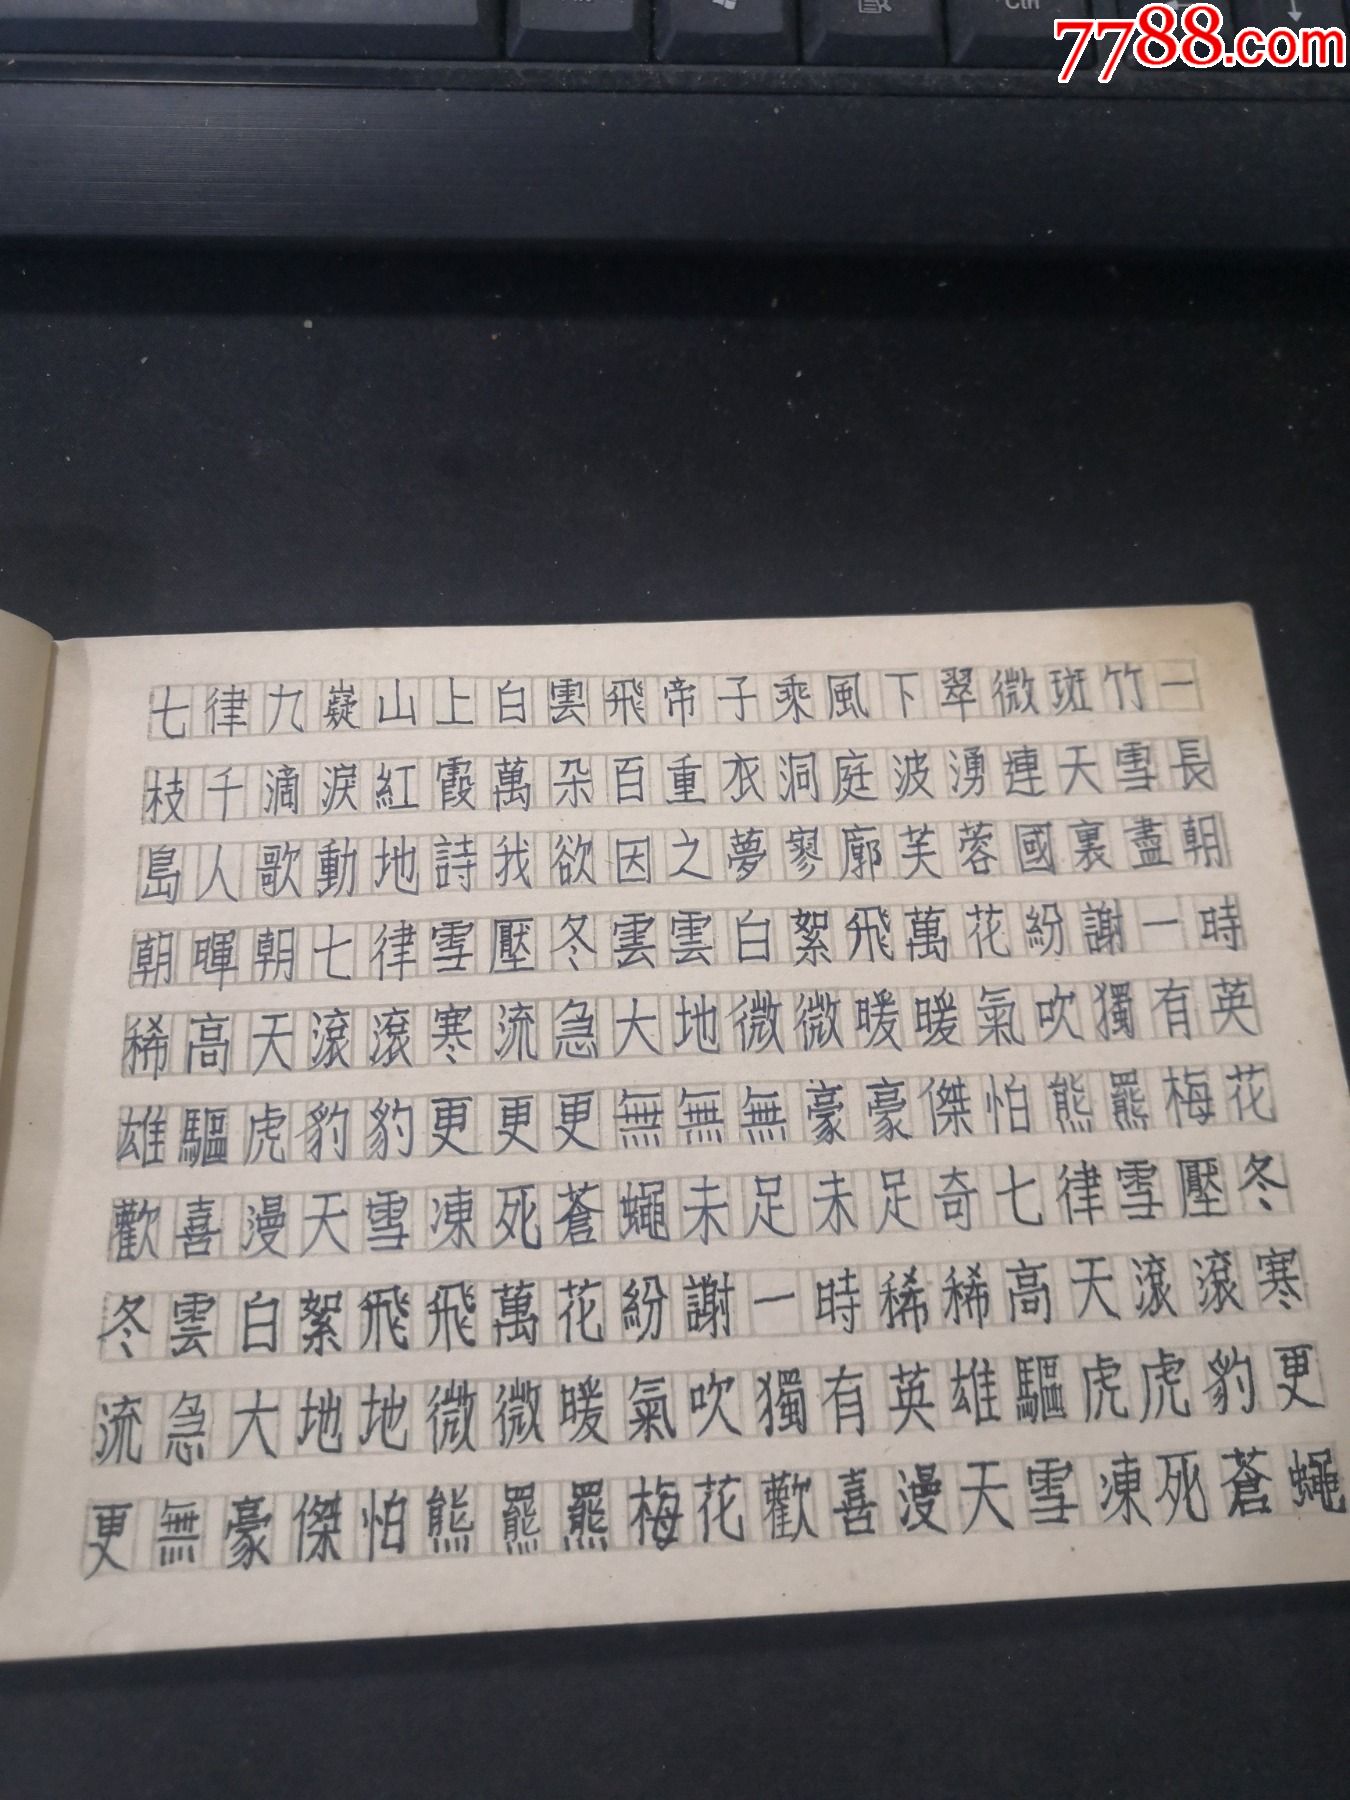 7788.com
Ctrl
七律九嶷山上白雲飛帝子乘風下翠微斑竹一
枝千滴淚紅霞萬朵百重衣洞庭波湧連天雪長
島人歌動地詩我欲因之夢寥廓芙蓉國裏盡朝
朝暉朝七律雪壓冬雲雲白絮飛萬花紛謝一時
稀高天滾滾寒流急大地微微暖暖氣吹獨有英
雄驅虎豹豹更更更無無無豪豪傑怕熊羆梅花
歡喜漫天雪凍死蒼蠅未足未足奇七律雪壓冬
冬雲白絮飛飛萬花紛謝一時稀稀高天滾滾寒
流急大地地微微暖氣吹獨有英雄驅虎虎豹更
更無豪傑怕熊羆羆梅花歡喜漫天雪凍死蒼蠅